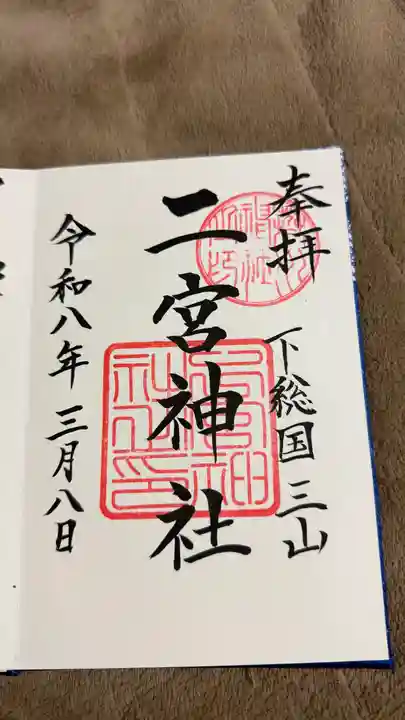 奉拝
下総国三山
二宮神社
令和八年三月八日